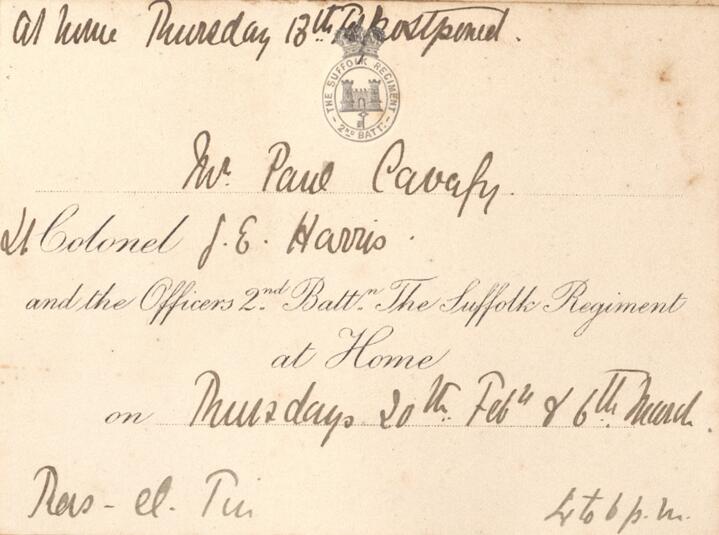 At home Thursday 13th Feb postponed.
THE SUFFOLK REGIMENT
2ND BATTN
Mr. Paul Cavafy.
Lt Colonel J. E. Harris.
and the Officers 2nd Battn. The Suffolk Regiment
at Home
on Thursdays 20th Feby & 6th March.
Ras-el-Tin
4 to 6 p.m.